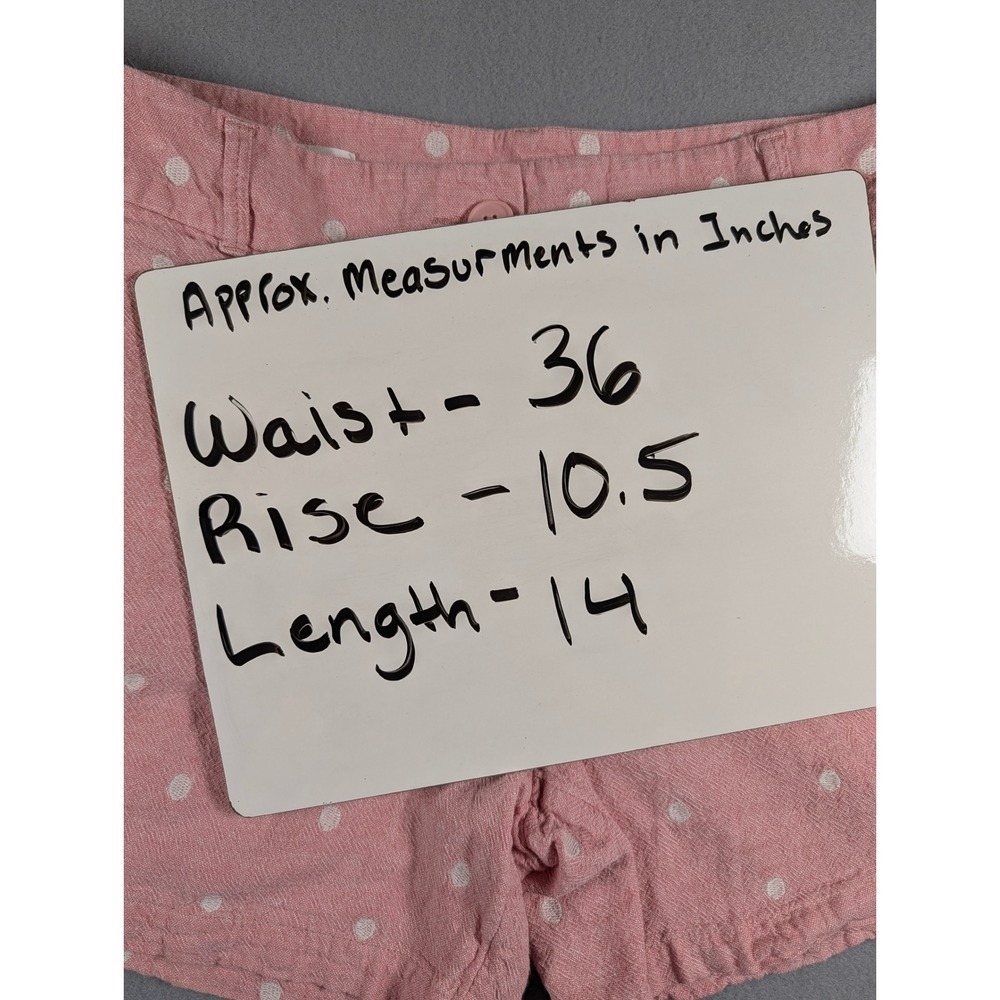 Approx. Measurments in Inches
Waist - 36
Rise - 10.5
Length - 14